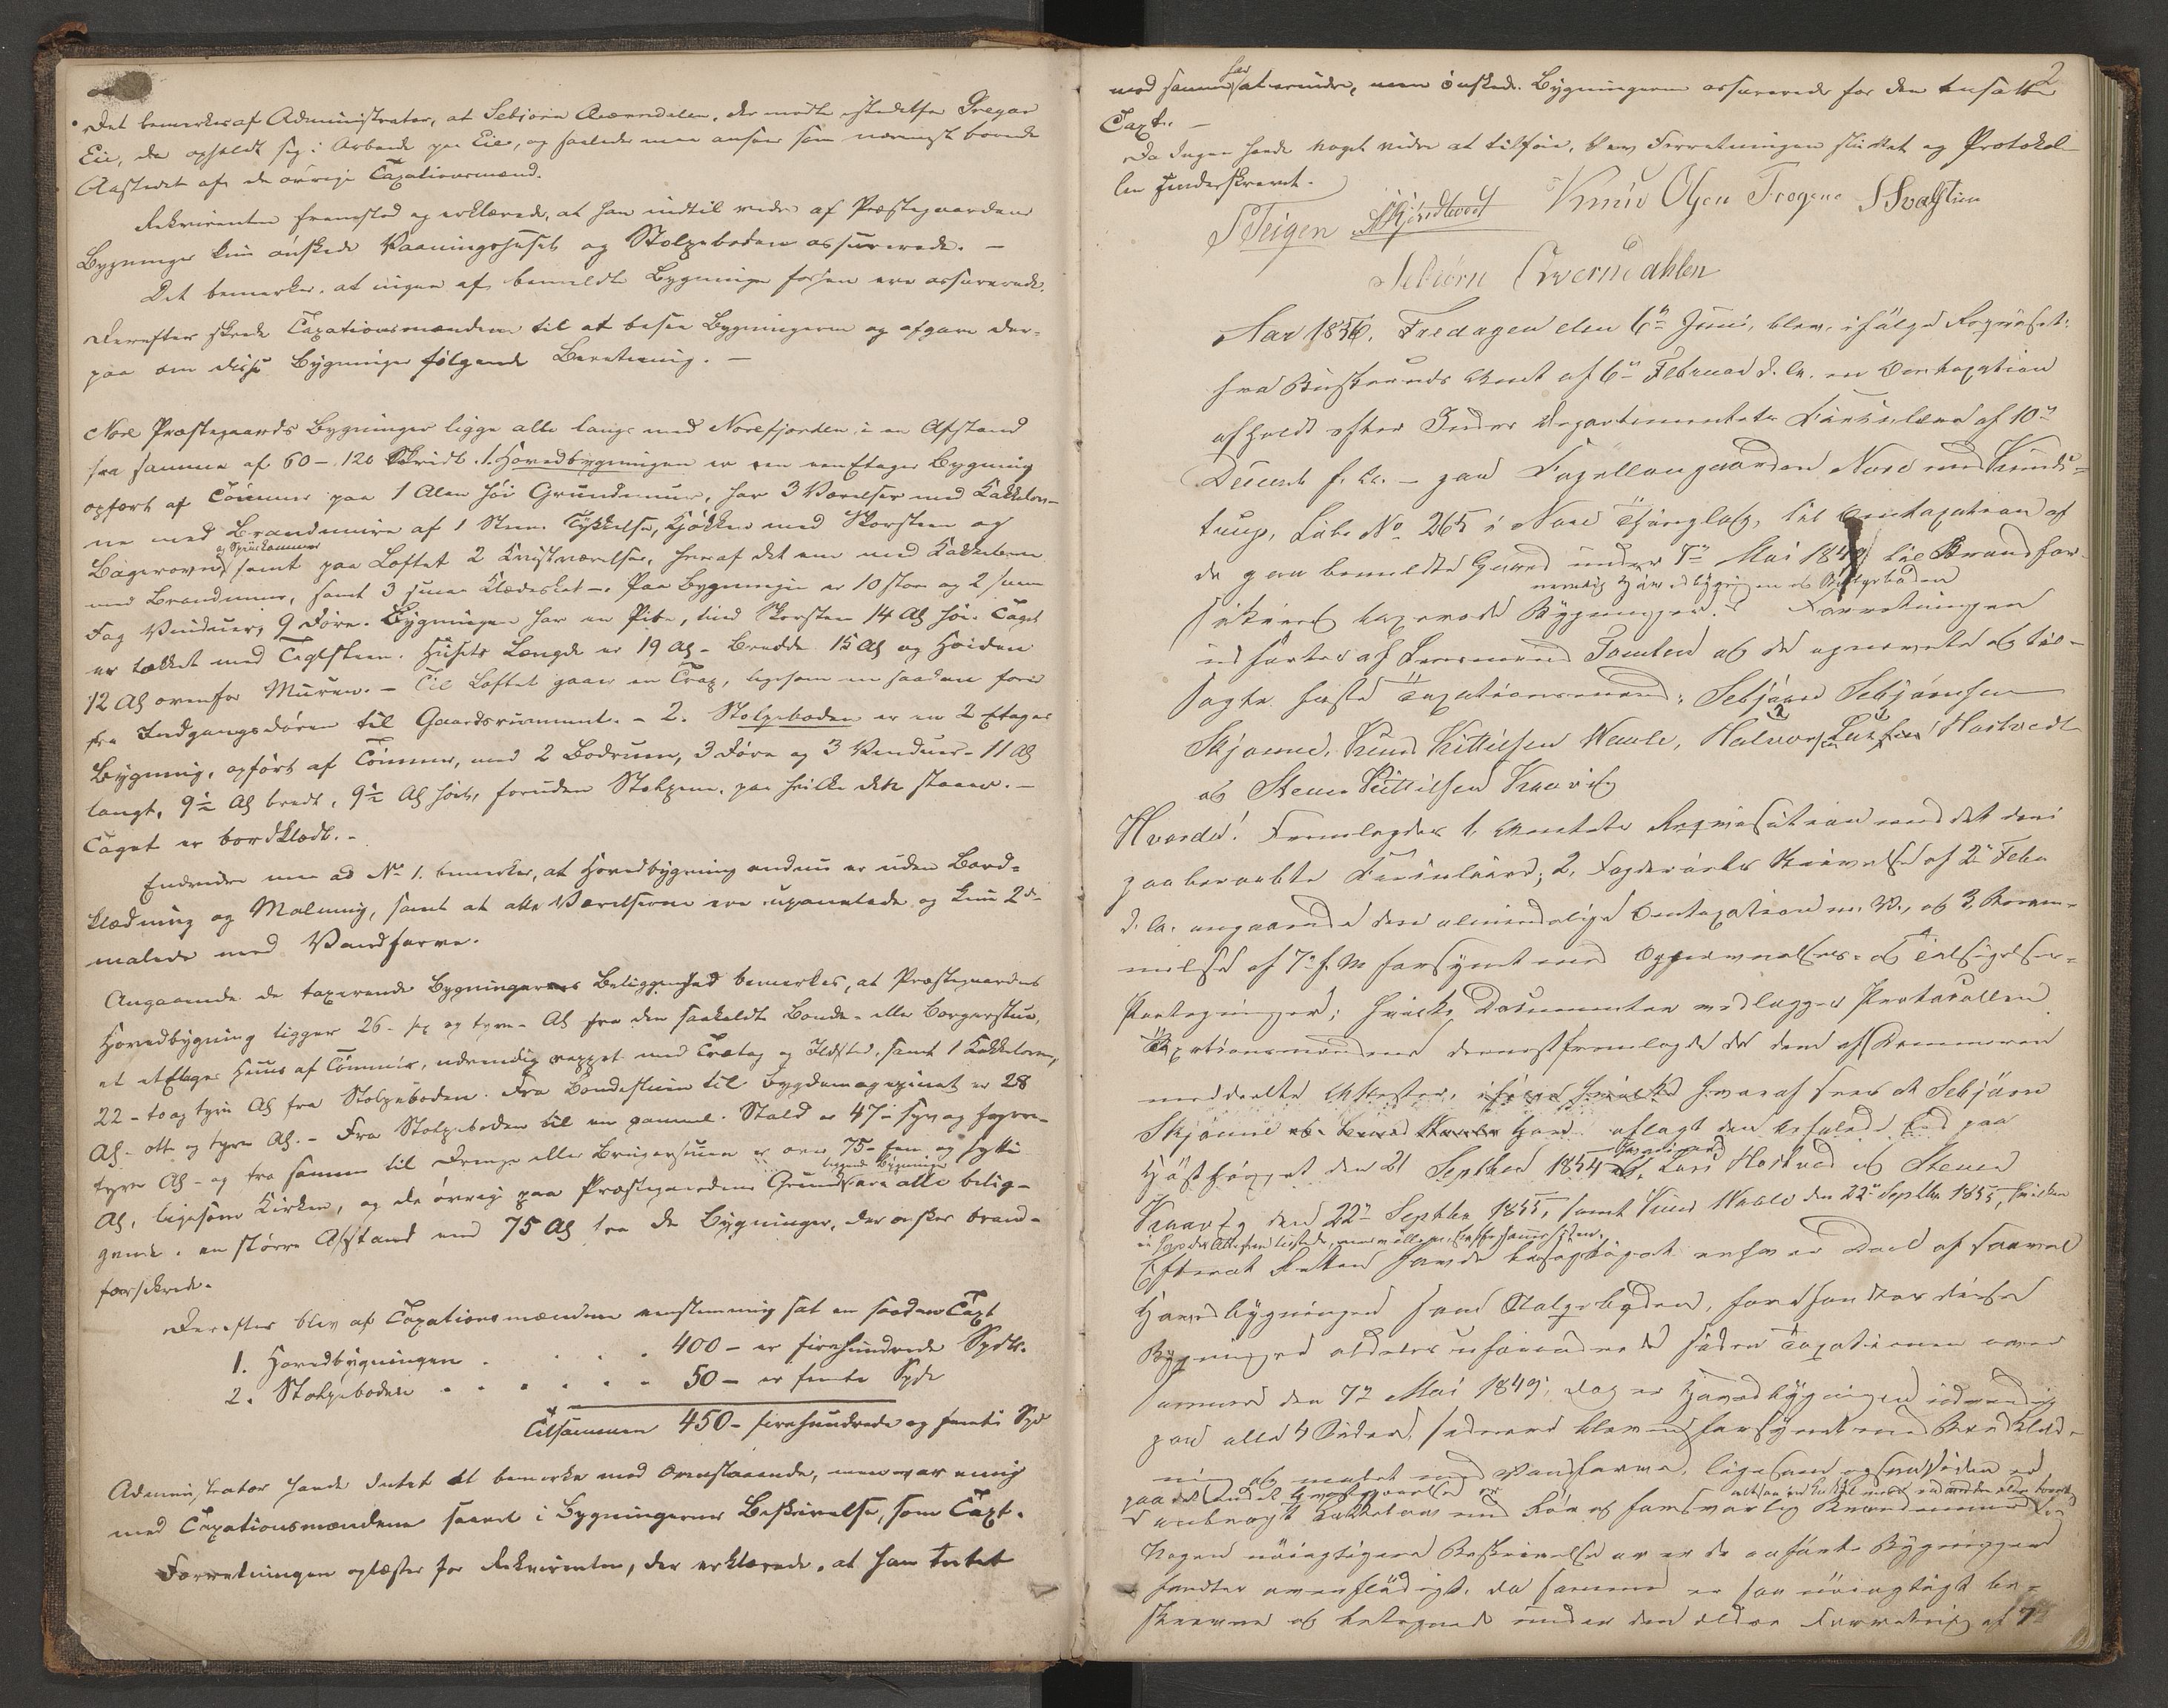 Det bemærkes af Administrator, at Sebjörn Qværndalen, der mødte istedetfor Gregar
Eie, da opholdt sig i Arbeide paa Eie, og saaledes maa ansees som nærmest boende
Aastedet af de øvrige Taxationsmænd.
Rekvirenten fremstod og erklærede, at han indtil videre af Præstegaardens
Bygninger kun ønskede Vaaningshuset og Stolpeboden assurerede. —
Det bemærkes, at ingen af bemeldte Bygninger forhen ere assurerede.
Derefter skrede Taxationsmændene til at besee Bygningerne og afgave der-
paa om disse Bygninger følgende Beretning. —
Nore Præstegaards Bygninger ligge alle langs med Norefjorden i en Afstand
fra samme af 60 - 120 Skridt. 1. Hovedbygningen er en een Etages Bygning
opført af Tømmer paa 1 Alen høi Grundmuur, har 3 Værelser med Kakkelov-
ne med Brandmure af 1 Steens Tykkelse, Kjøkken med Skorsteen og
og Spiiskammer
Bagerovn, samt paa Loftet 2 Kvistværelser, hvoraf det ene med Kakkelovn
med Brandmuur, samt 3 smaa Klædeskot -. Paa Bygningen er 10 store og 2 smaa
Fag Vinduer, 9 Döre. Bygningen har en Pibe, med Skorsteen 14 Al höi. Taget
er tækket med Teglsteen. Husets Længde er 19 Al - Bredde 15 Al og Høiden
12 Al ovenfor Muren. - Til Loftet gaaer en Trap, ligesom en saadan fører
fra Indgangsdören til Gaardsrummet. - 2. Stolpeboden er en 2 Etages
Bygning, opført af Tömmer, med 2 Bodrum, 3 Döre og 3 Vinduer - 11 Al
langt, 9½ Al bredt, 9½ Al höit, foruden Stolpene, paa hvilke den staaer. —
Taget er bordklædt. -
Endvidere maa ad No 1. bemærkes, at Hovedbygning endnu er uden Bord-
klædning og Malning, samt at alle Værelserne ere upanelede og kun 2de
malede med Vandfarve.
Angaaende de taxerende Bygningernes Beliggenhed bemærkes, at Præstegaardens
Hovedbygning ligger 26 - sex og tyve - Al fra den saakaldte Bonde- eller Borgerstue,
et et Etages Huus af Tömmer, udvendig rappet med Trætag og Ildsted, samt 1 Kakkelovn,
22 - to og tyve Al fra Stolpeboden. Fra Bondestuen til Bygdemagazinet er 28
Al - otte og tyve Al. - Fra Stolpeboden til en gammel Stald er 47 - syv og fyrre-
tyve Al - og fra samme til Drenge eller Brygerstuen er over 75 - fem og sytti
Al, ligesom Kirken, og de øvrige paa Præstegaardens Grund liggende Bygninger ere alle belig-
gende i en større Afstand end 75 Al fra de Bygninger, der ønskes brand-
forsikrede.
Derefter blev af Taxationsmændene eenstemmig sat en saadan Taxt
1. Hovedbygningen . . . . 400 - er firehundrede Spdlr.
2. Stolpeboden . . . . . . 50 - er femti Spdr
Tilsammen 450 - firehundrede og femti Spd
Administrator havde Intet at bemærke mod Ovenstaaende, men var enig
med Taxationsmændene saavel i Bygningernes Beskrivelse, som Taxt.
Forretningen oplæstes for Rekvirenten, der erklærede, at han Intet
2
mod samme havde at erindre, men ønskede Bygningerne assurerede for den ansatte
Taxt. —
Da Ingen havde noget videre at tilføie, blev Forretningen sluttet og Protokol-
len underskrevet.
S Teigen Knud Olsen Frogne
Sebiörn Qwerndahlen
Aar 1856, Fredagen den 6te Juni, blev, ifølge Reqvisit:
fra Buskeruds Amt af 6te Februar d. A. en Omtaxation
afholdt efter Indre Departementets Circulære af 10de
Decemb f. A. - paa Capellangaarden Nore med Kirude-
tuup, Løbe No 265 i Nore Thinglag, til Omtaxation af
de paa bemeldte Gaard under 7de Mai 1849 til Brandfor-
nemlig Hovedbygningen og Stolpeboden
sikring taxerede Bygninger. Forretningen
udførtes af Lensmand Tomten og de opnævnte og til-
sagte faste Taxationsmænd: Sebjørn Sebjørnsen
Skjønne, Knud Kittilsen Waale, Halvor Larsen Hostvedt
og Steen Kittilsen Kravig
Hvorda! Fremlagdes 1, Amtets Reqvisition med det deri
paaberaabte Circulære; 2, Fogderiets Skrivelse af 2de Febr
d. A. angaaende den almindelige Omtaxation m. V., og 3,
af 7de f. M forsynet med Opnævnelses- og Tilsigelses-
Paategninger; hvilke Documenter vedlægges Protocollen.
Taxationsmændene dernæst fremlagde de dem af
meddeelte Attester, hvoraf sees at Sebjørn
Skjønne har aflagt den befalede Eed paa
Høstthinget den 21 Septber 1854, Lars Hostved og Steen
Kravig den 22de Septbr 1855, samt Knud Waale den 22de Septbr 1855,
Efterat Retten havde besigtiget enhver Deel af saavel
Hovedbygningen som Stolpeboden, forefandtes disse
Bygninger aldeles uforandrede siden Taxationen over
samme den 7de Mai 1849; dog er Hovedbygningen udvendig
paa alle 4 Sider, senere bleven forsynet med Bordklæd-
ning og malet med Vandfarve, ligesom
anbragt Kakkelovn med Rör og forsvarlig Brandmuur
Nogen nöiagtigere Beskrivelse over de anførte Bygninger
fandtes overflødigt, da samme er saa nöiagtigt be-
skrevne og betegnede under den ældre Forretning af 7